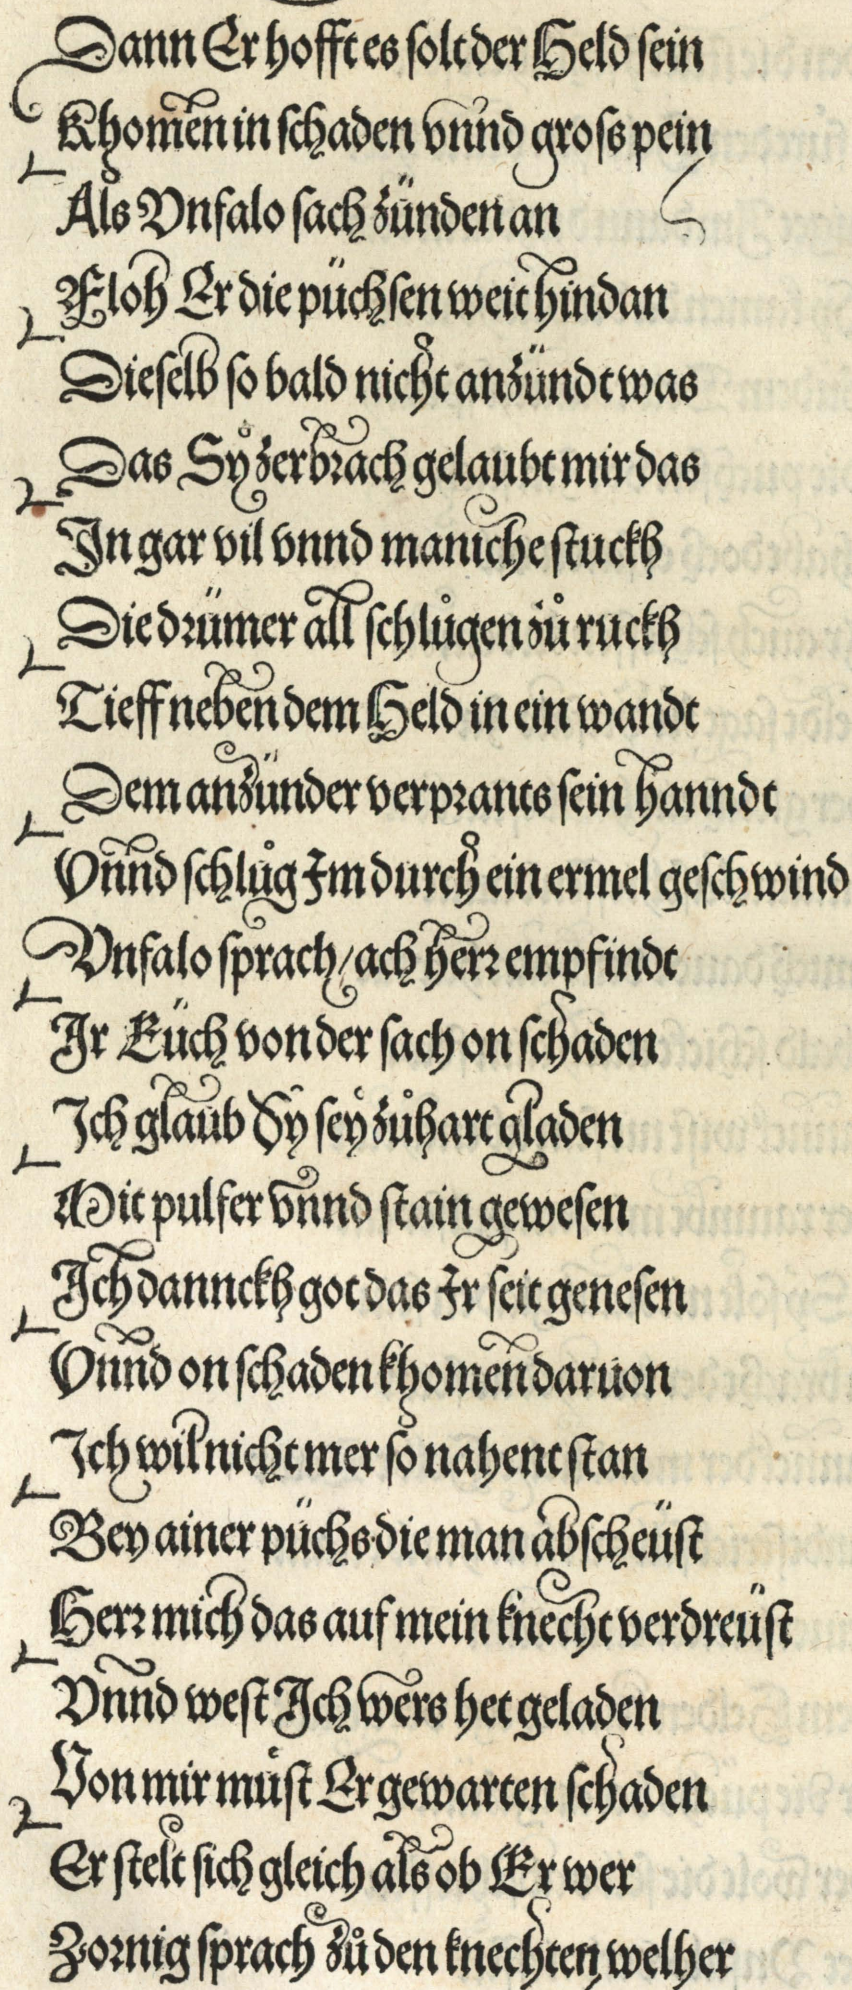 Dann Er hofft es solt der Held sein
Khomen in schaden vnnd gross pein
Als Vnfalo sach zünden an
Floh Er die püchsen weit hindan
Dieselb so bald nicht anzündt was
Das Sy zerbrach gelaubt mir das
In gar vil vnnd maniche stuckh
Die drümer all schlůgen zů ruckh
Tieff neben dem Held in ein wandt
Dem anzünder verprants sein hanndt
Vnnd schlůg Im durch ein ermel geschwind
Vnfalo sprach/ach herr empfindt
Ir Eüch von der sach on schaden
Ich glaub Sy sey zůhart gladen
Mit pulfer vnnd stain gewesen
Ich dannckh got das Ir seit genesen
Vnnd on schaden khomen daruon
Ich wil nicht mer so nahent stan
Bey ainer püchs die man abscheüst
Herr mich das auf mein knecht verdreüst
Vnnd west Ich wers het geladen
Von mir můst Er gewarten schaden
Er stelt sich gleich als ob Er wer
Zornig sprach zů den knechten welher